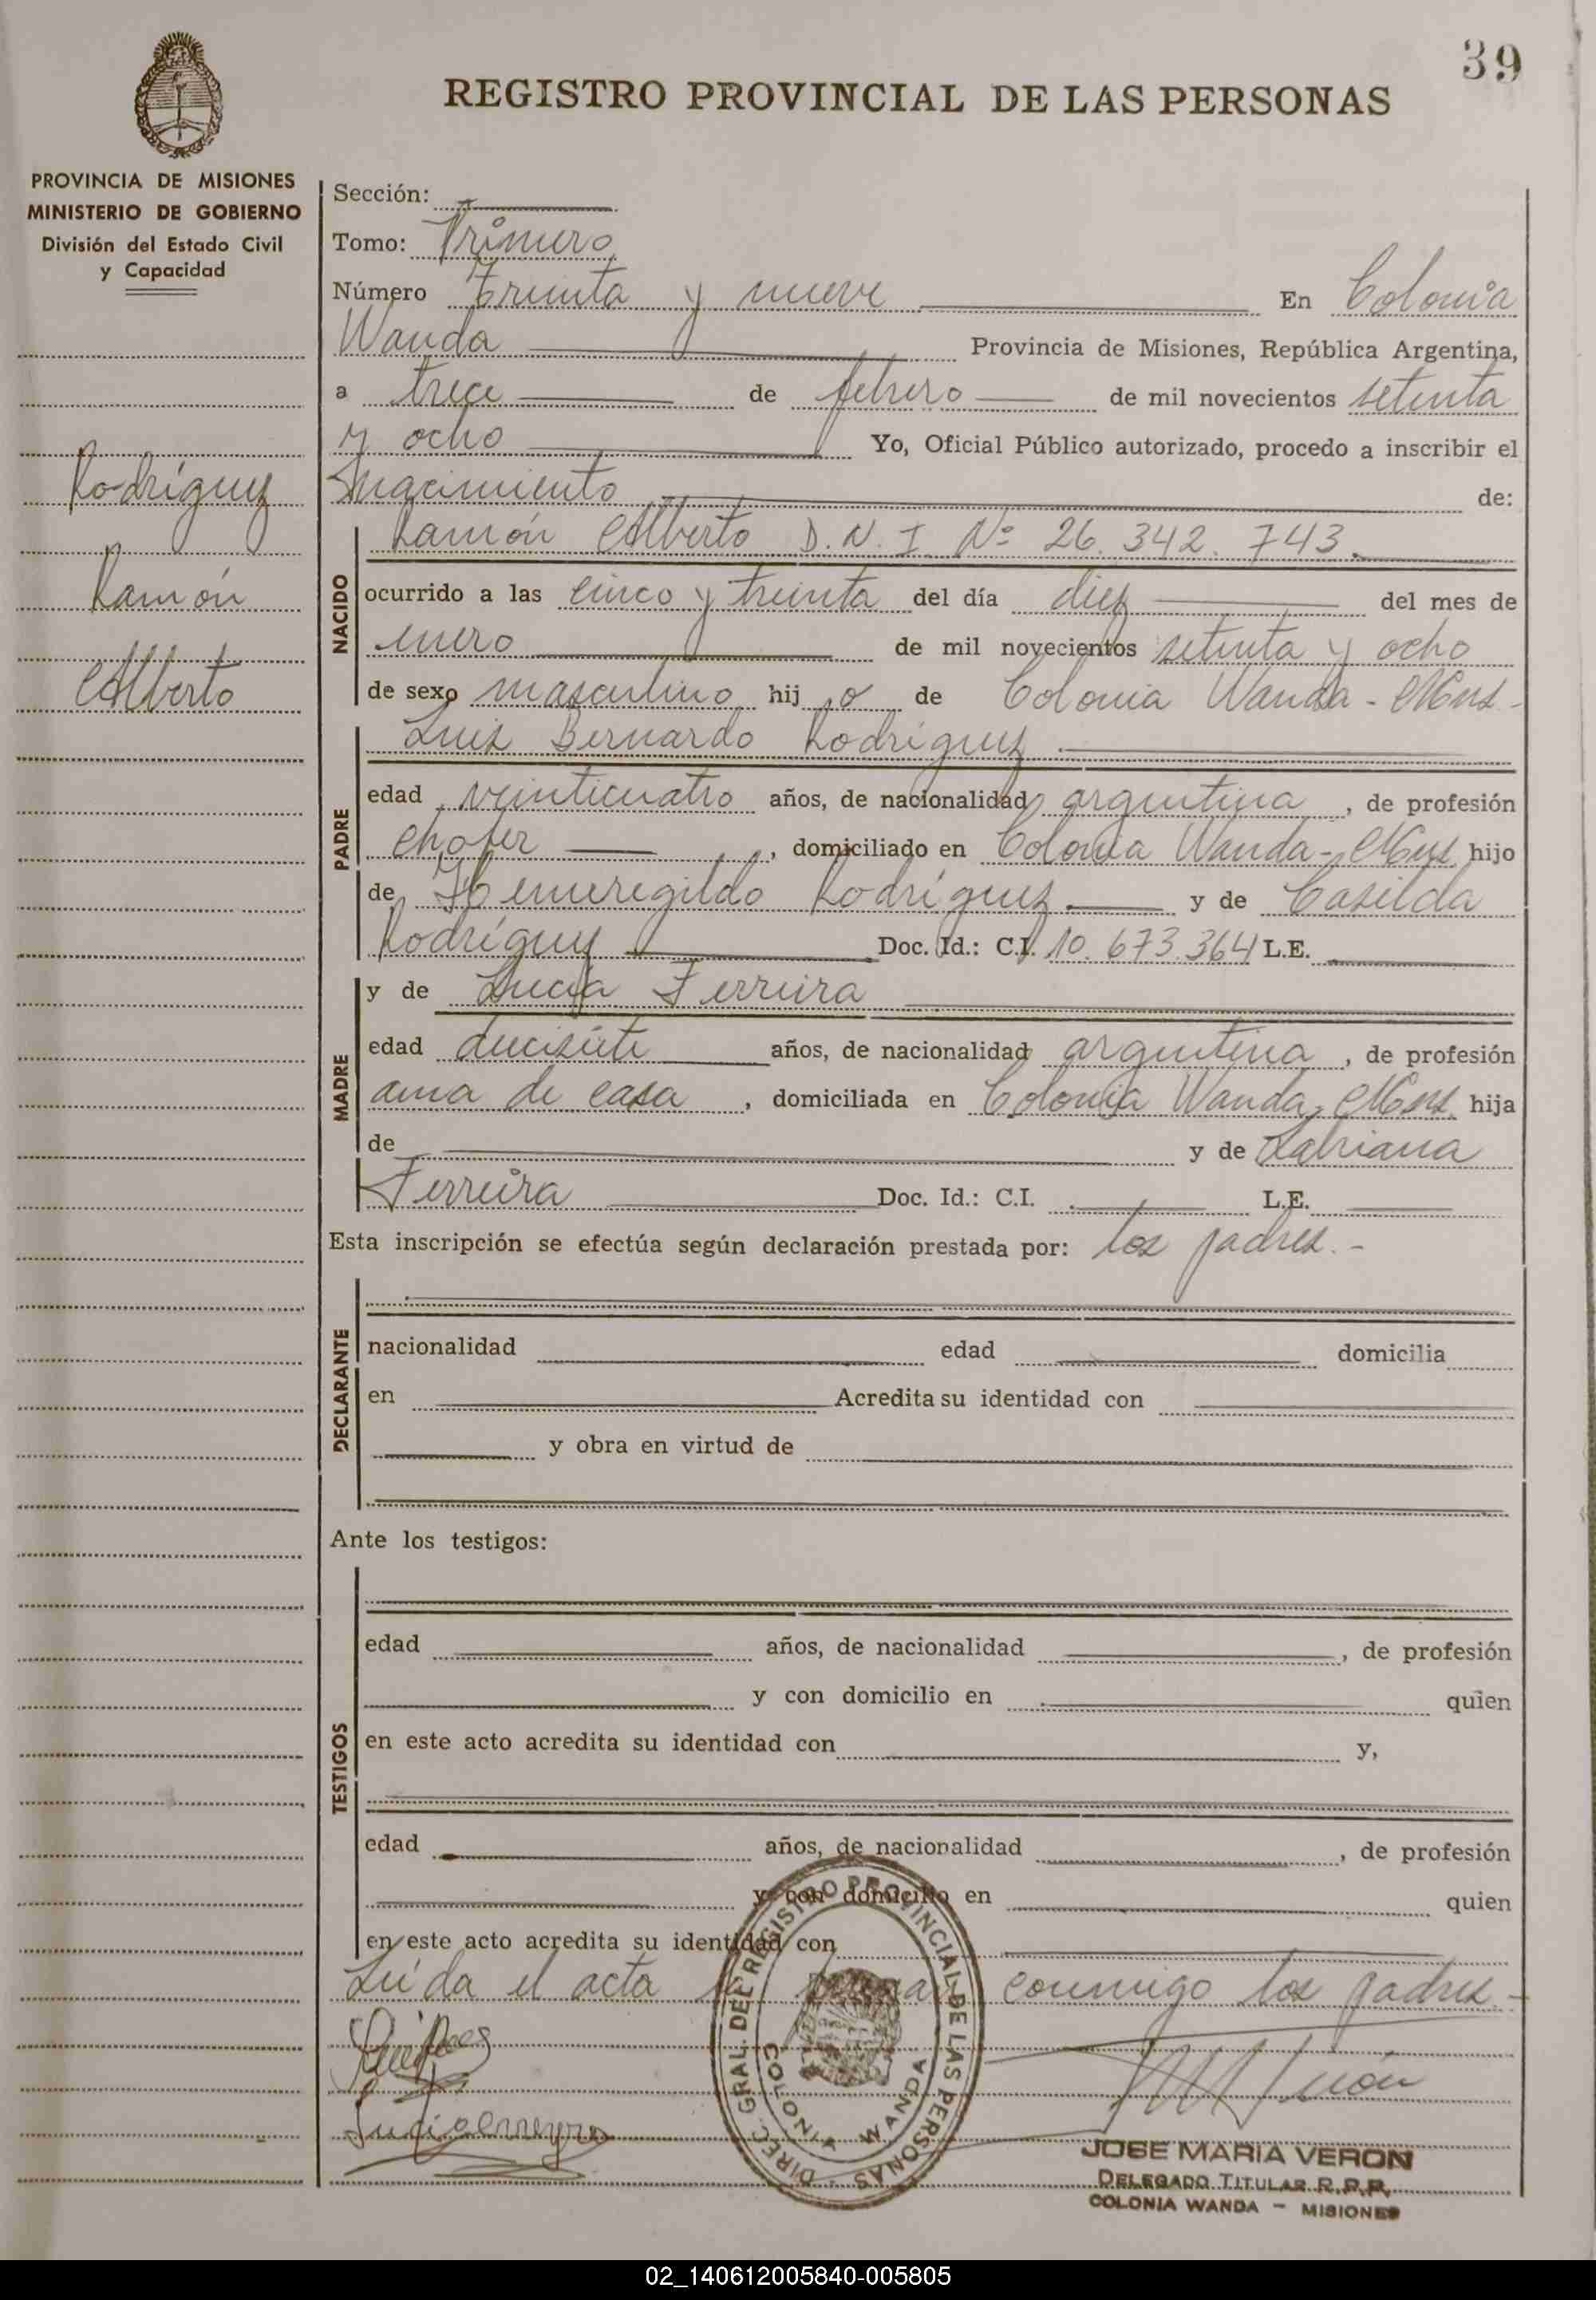 39
REGISTRO PROVINCIAL DE LAS PERSONAS
PROVINCIA DE MISIONES
MINISTERIO DE GOBIERNO
División del Estado Civil
y Capacidad
Rodríguez
Ramón
Alberto
Sección:
Tomo: Primero
Número Treinta y nueve En Colonia
Wanda Provincia de Misiones, República Argentina,
a trece de febrero de mil novecientos setenta
y ocho Yo, Oficial Público autorizado, procedo a inscribir el
nacimiento de:
NACIDO
Ramón Alberto D.N.I. Nº 26.342.743.
ocurrido a las cinco y treinta del día diez del mes de
enero de mil novecientos setenta y ocho
de sexo masculino hij o de Colonia Wanda - Mns.-
PADRE
Luis Bernardo Rodríguez
edad veinticuatro años, de nacionalidad argentina, de profesión
chofer, domiciliado en Colonia Wanda - Mns hijo
de Hemeregildo Rodríguez y de Casilda
Rodríguez Doc. Id.: C.I. 10.673.364 L.E.
MADRE
y de Lucía Ferreira
edad diecisiete años, de nacionalidad argentina, de profesión
ama de casa, domiciliada en Colonia Wanda, Mns. hija
de y de
Ferreira Doc. Id.: C.I. L.E.
Esta inscripción se efectúa según declaración prestada por: los padres.-
DECLARANTE
nacionalidad edad domicilia
en Acredita su identidad con
y obra en virtud de
Ante los testigos:
TESTIGOS
edad años, de nacionalidad, de profesión
y con domicilio en quien
en este acto acredita su identidad con y,
edad años, de nacionalidad, de profesión
y con domicilio en quien
en este acto acredita su identidad con
Leída el acta la firman conmigo los padres.-
DIREC. GRAL. DEL REGISTRO PROVINCIAL DE LAS PERSONAS
COLONIA WANDA
JOSE MARIA VERON
DELEGADO TITULAR R.P.P.
COLONIA WANDA - MISIONES
02_140612005840-005805